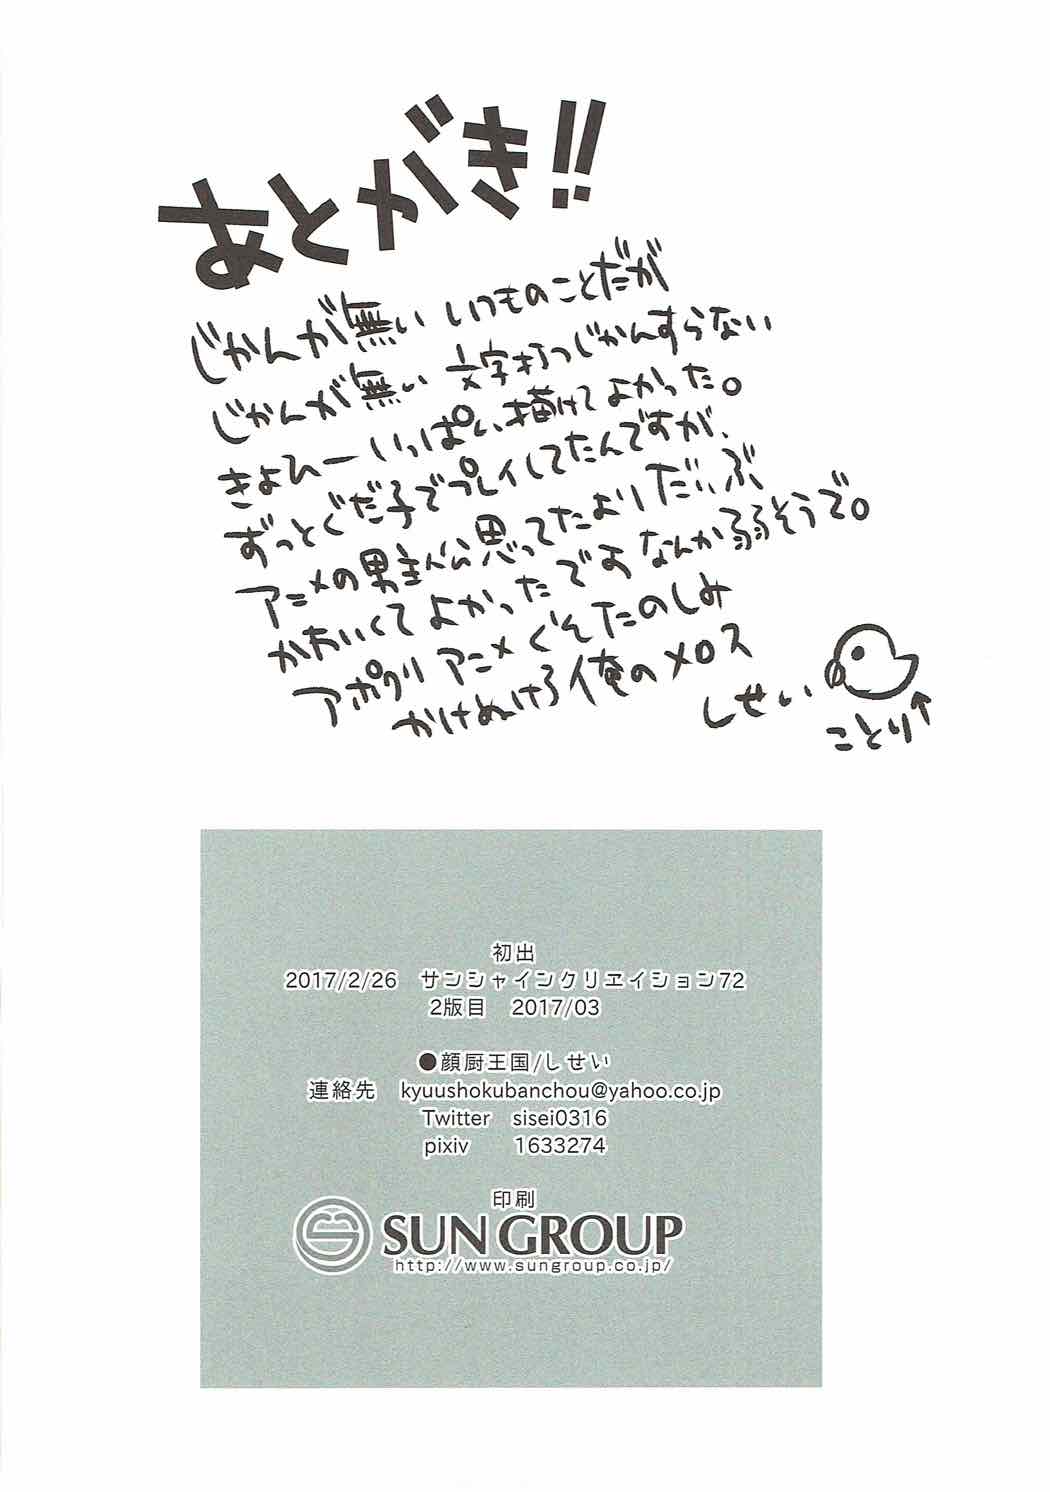 あとがき!!
じかんが無い いつものことだが
じかんが無い 文字打つじかんすらない
きよひー いっぱい描けてよかった。
ずっとぐだ子でプレイしてたんですが、
アニメの男主人公思ってたよりだいぶ
かわいくてよかったです なんか弱そうで。
アポクリアニメぐそたのしみ
かけぬけろ俺のメロス
しせい
ことり↑
初出
2017/2/26 サンシャインクリエイション72
2版目 2017/03
●顔厨王国/しせい
連絡先 kyuushokubanchou@yahoo.co.jp
Twitter sisei0316
pixiv 1633274
印刷
SUN GROUP
http://www.sungroup.co.jp/